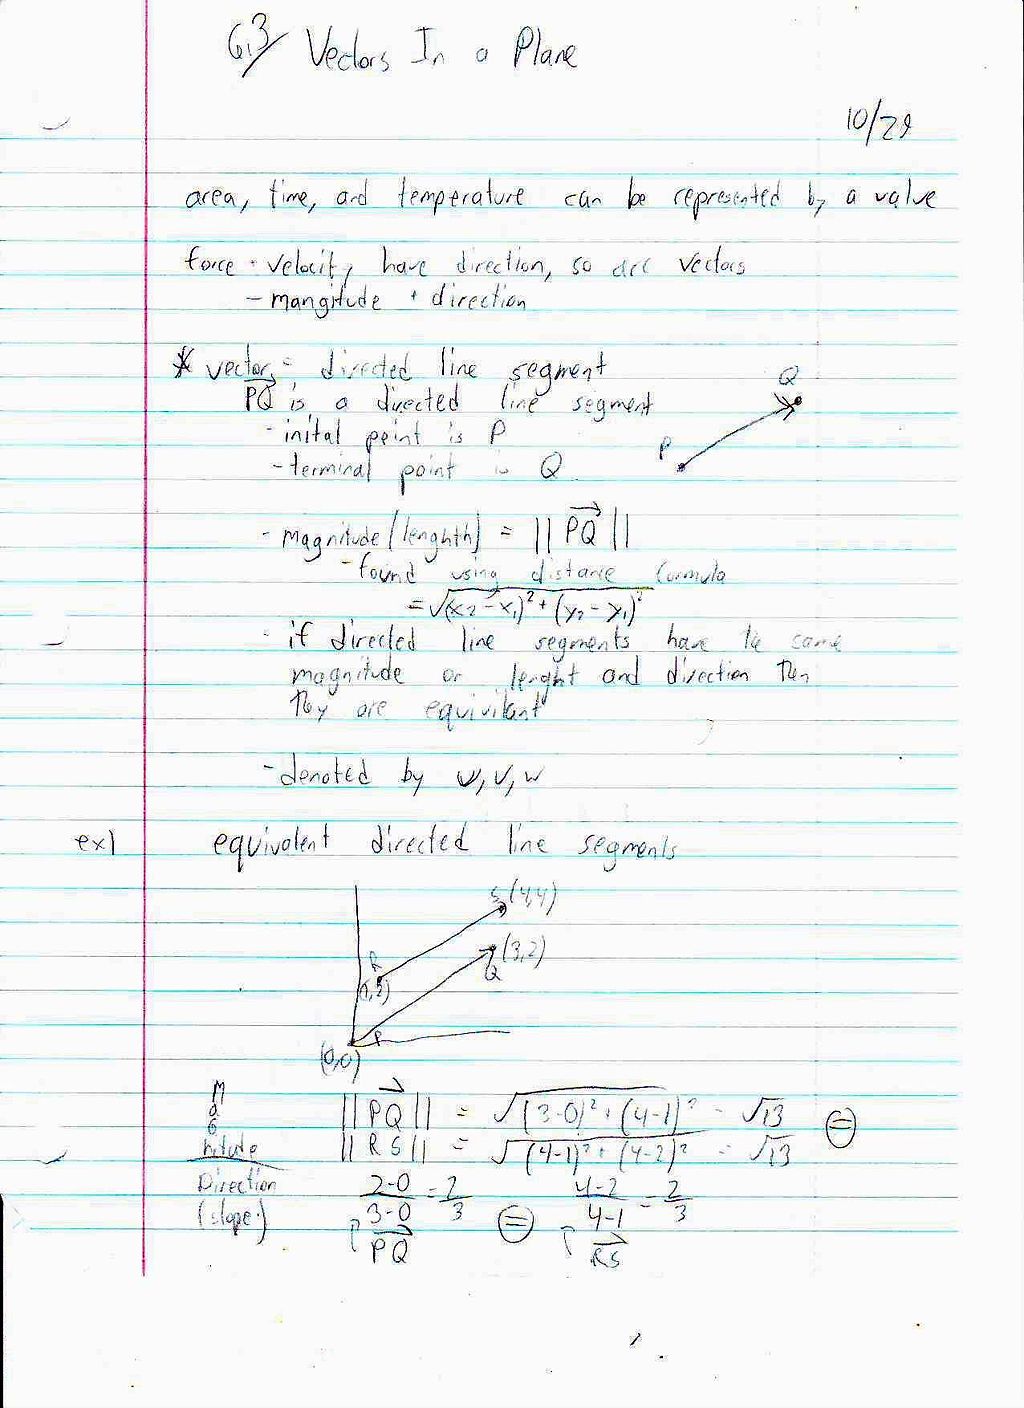 6.3/ Vectors In a Plane
10/29
area, time, and temperature can be represented by a value
force + velocity have direction, so are vectors
- mangitude + direction
* vector = directed line segment
PQ is a directed line segment
- inital point is P
- terminal point is Q
Q
P
- magnitude (lenghth) = ||PQ||
- found using distance formula
= √(x2 - x1)² + (y2 - y1)²
- if directed line segments have the same
magnitude or lenght and direction then
they are equivilant
- denoted by u, v, w
ex1 equivalent directed line segments
S (4,4)
(3,2)
Q
R
(1,2)
P
(0,0)
Magnitude
||PQ|| = √(3-0)² + (4-1)² = √13 =
||RS|| = √(4-1)² + (4-2)² = √13
Direction (slope:)
2-0/3-0 = 2/3 = 4-2/4-1 = 2/3
PQ RS